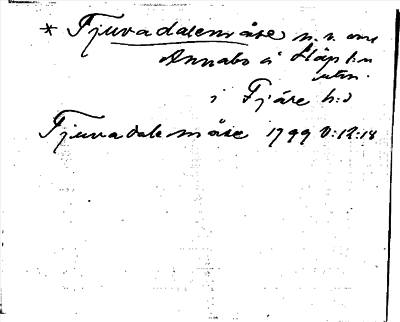 * Tjuvadalemåse n. n. om
Annabo å Släp s:n
utm.
i Fjäre h:d
Tjuvadalemåse 1799 0:12:18